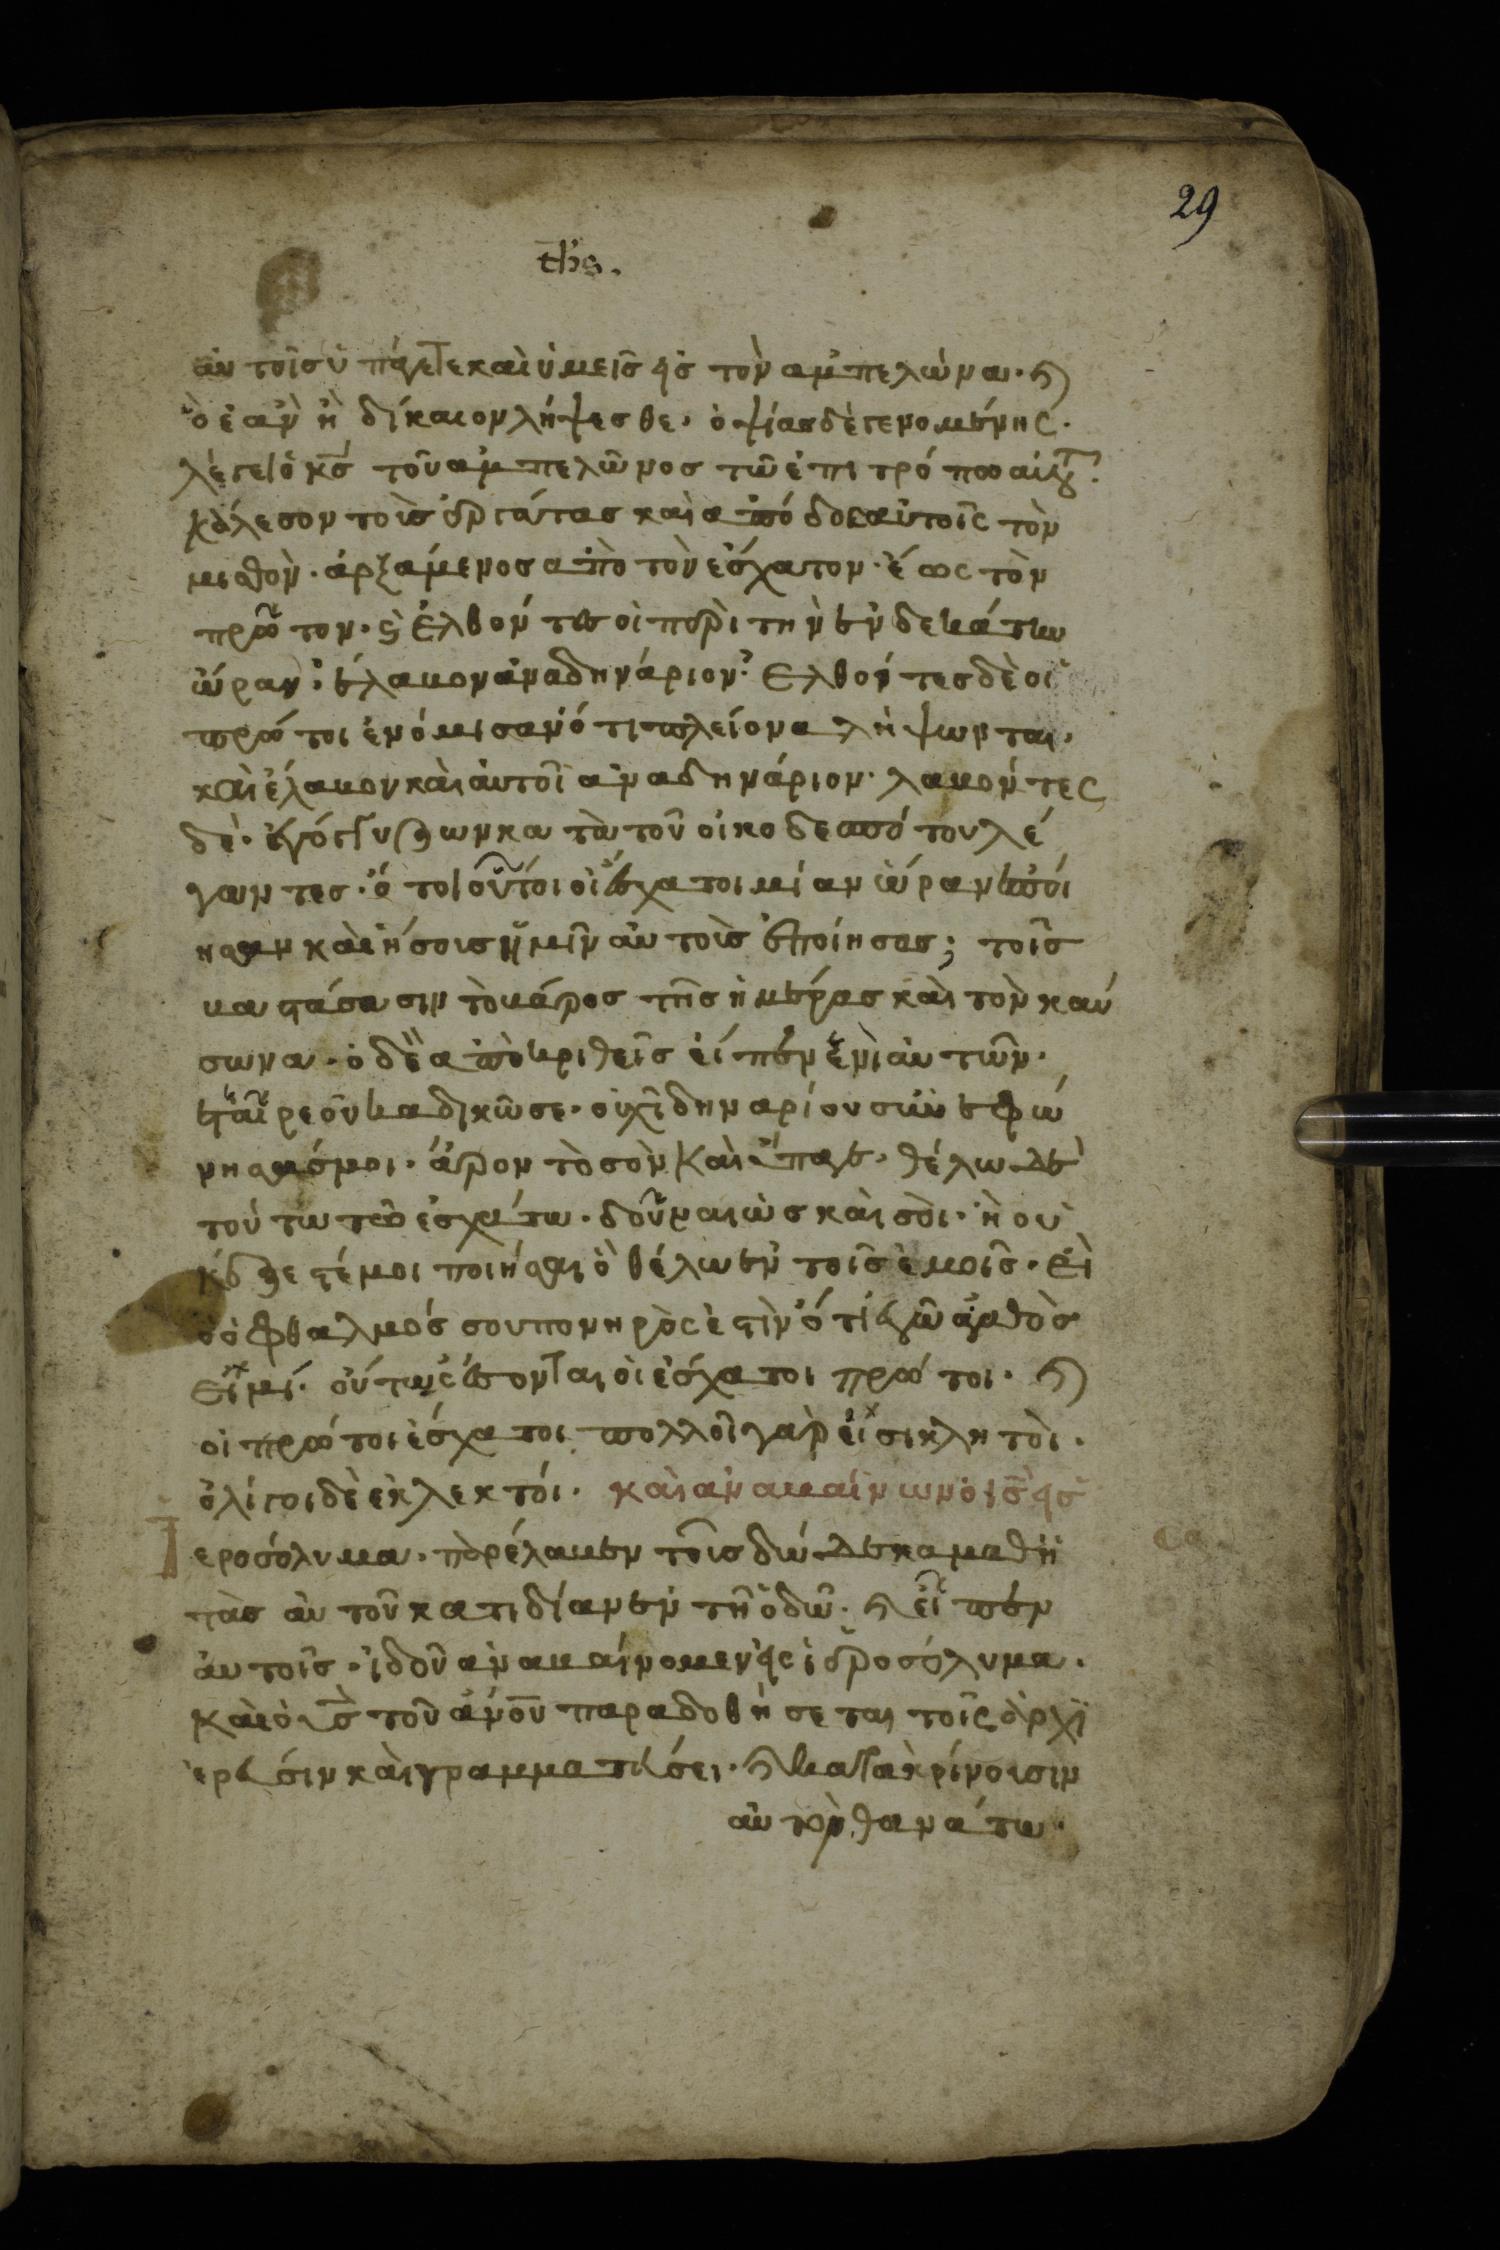 29
αὐτοῖς ὑπάγετε καὶ ὑμεῖς εἰς τὸν ἀμπελώνα· κ(αὶ)
ὃ ἐὰν ἦ δίκαιον λήψεσθε· ὀψίας δὲ γενομένης·
λέγει ὁ κς τοῦ ἀμπελῶνος τῶ ἐπιτρόπου αὐτ(οῦ)·
κάλεσον τοὺς ἐργάτας καὶ ἀπόδος αὐτοῖς τὸν
μισθὸν· ἀρξάμενος ἀπὸ τὸν ἐσχατον· ἕως τὸν
πρῶτον· κ(αὶ) ἐλθόντες οἱ περὶ τὴν ἐνδεκάτην
ὥραν· ἔλαβον ἀνὰ δηνάριον· Ελθόντες δὲ οἱ
πρώτοι ἐνόμισαν ὅτι πλείονα λήψωνται·
καὶ ἔλαβον καὶ αὐτοὶ ἀνὰ δηνάριον· λαβόντες
δὲ· ἐγόγγυζων κατὰ τοῦ οἰκοδεσπότου λέ
γωντες· ὅτοι οὗτοι οἱ ἔσχατοι μίαν ὥραν ἐποί
ησαν καὶ ἴσους ἡμῖν αὐτοὺς ἐποίησας; τοῖς
βαστάσασιν τὸ βάρος τῆς ἡμέρας καὶ τὸν καύ
σωνα· ὁ δὲ ἀποκριθεὶς εἶπεν ἑνὶ αὐτῶν·
ἑταῖρε οὐκ ἀδικῶ σε· οὐχὶ δηναρίου συνεφώ
νησάς μοι· ἆρον τὸ σὸν καὶ ὕπαγε· θέλω δὲ
τούτω τῶ ἐσχάτω· δοῦναι ὡς καὶ σοὶ· ἢ οὐ
κ ἔξεστέ μοι ποιήσαι ὃ θέλω ἐν τοῖς ἐμοῖς· Εἰ
ὁ ὀφθαλμός σου πονηρὸς ἐστὶν ὅτι ἐγῶ ἀγαθὸς
εἰμί· οὕτως ἔσονται οἱ ἐσχατοι πρώτοι· κ(αὶ)
οἱ πρώτοι ἐσχατοι πολλοὶ γὰρ εἰσι κλητοὶ·
ὀλίγοι δὲ ἐκλεκτοί· καὶ ἀναβαίνων ὁ ις εἰς
Ἱεροσόλυμα· παρέλαβεν τοὺς δώδεκα μαθη
τὰς αὐτοῦ κατιδίαν ἐν τῆ ὁδῶ· κ(αὶ) εἶπεν
αὐτοῖς· ἰδοῦ ἀναβαίνομεν εἰς ἱεροσόλυμα·
καὶ ὁ υς τοῦ ανου παραδοθήσεται τοῖς ἀρχι
ερεύσιν καὶ γραμματεύσει· κ(αὶ) κατακρίνουσιν
αὐτὸν θανάτω·